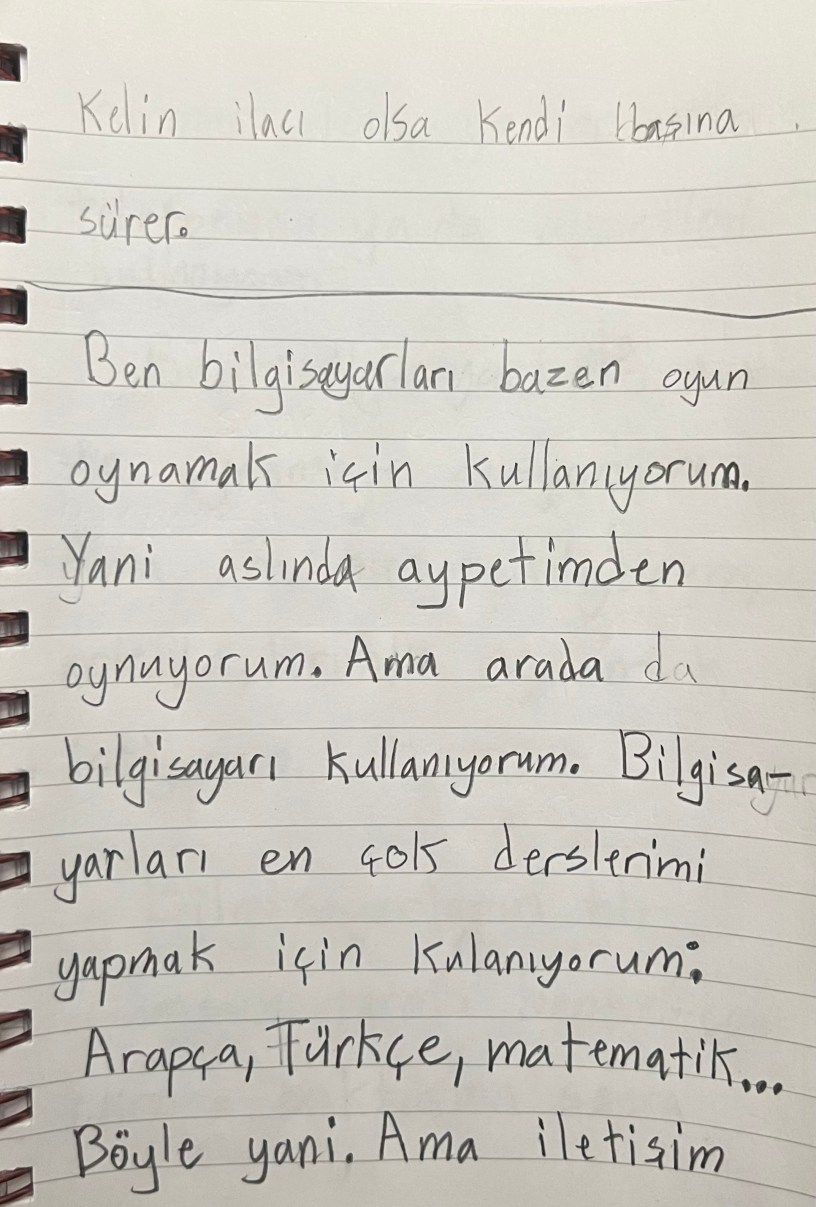 Kelin ilacı olsa kendi başına
sürer.
Ben bilgisayarları bazen oyun
oynamak için kullanıyorum.
Yani aslında aypetimden
oynuyorum. Ama arada da
bilgisayarı kullanıyorum. Bilgisa-
yarları en çok derslerimi
yapmak için kulanıyorum:
Arapça, Türkçe, matematik...
Böyle yani. Ama iletişim